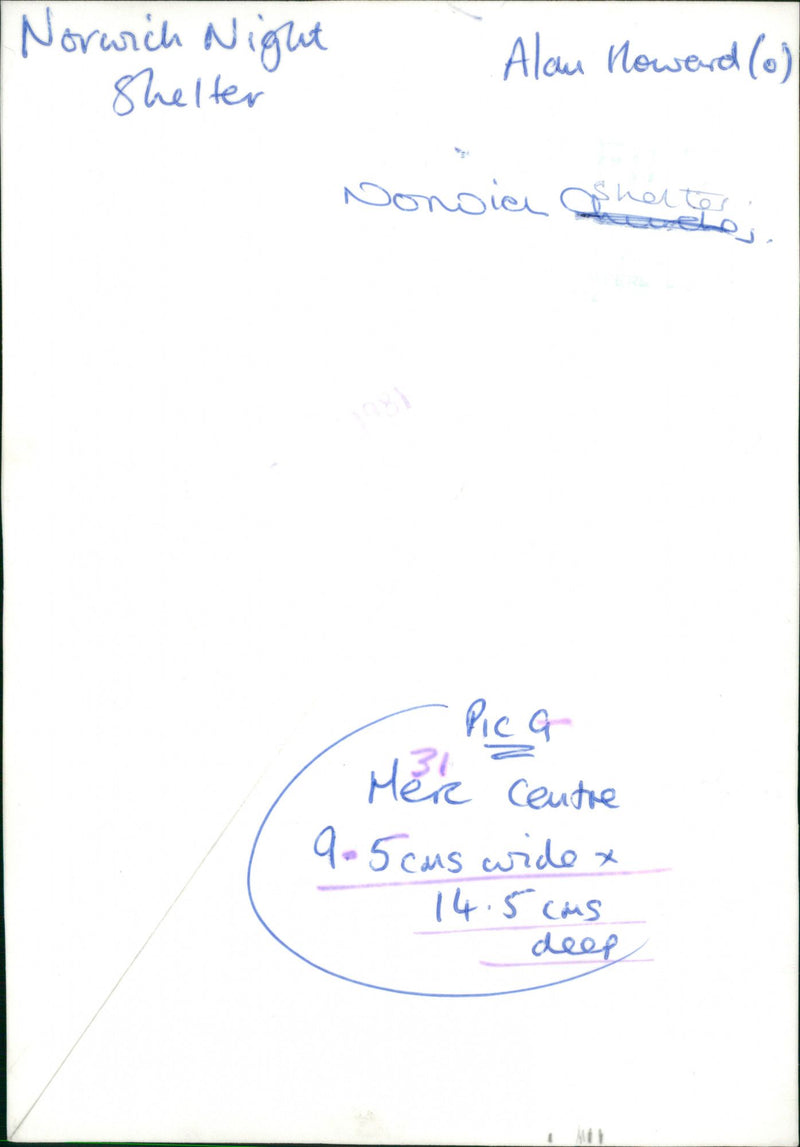 Norwich Night
Shelter
Alan Howard (o)
Norwich Shelter.
Pic 9
31
Merc Centre
9.5 cms wide x
14.5 cms
deep